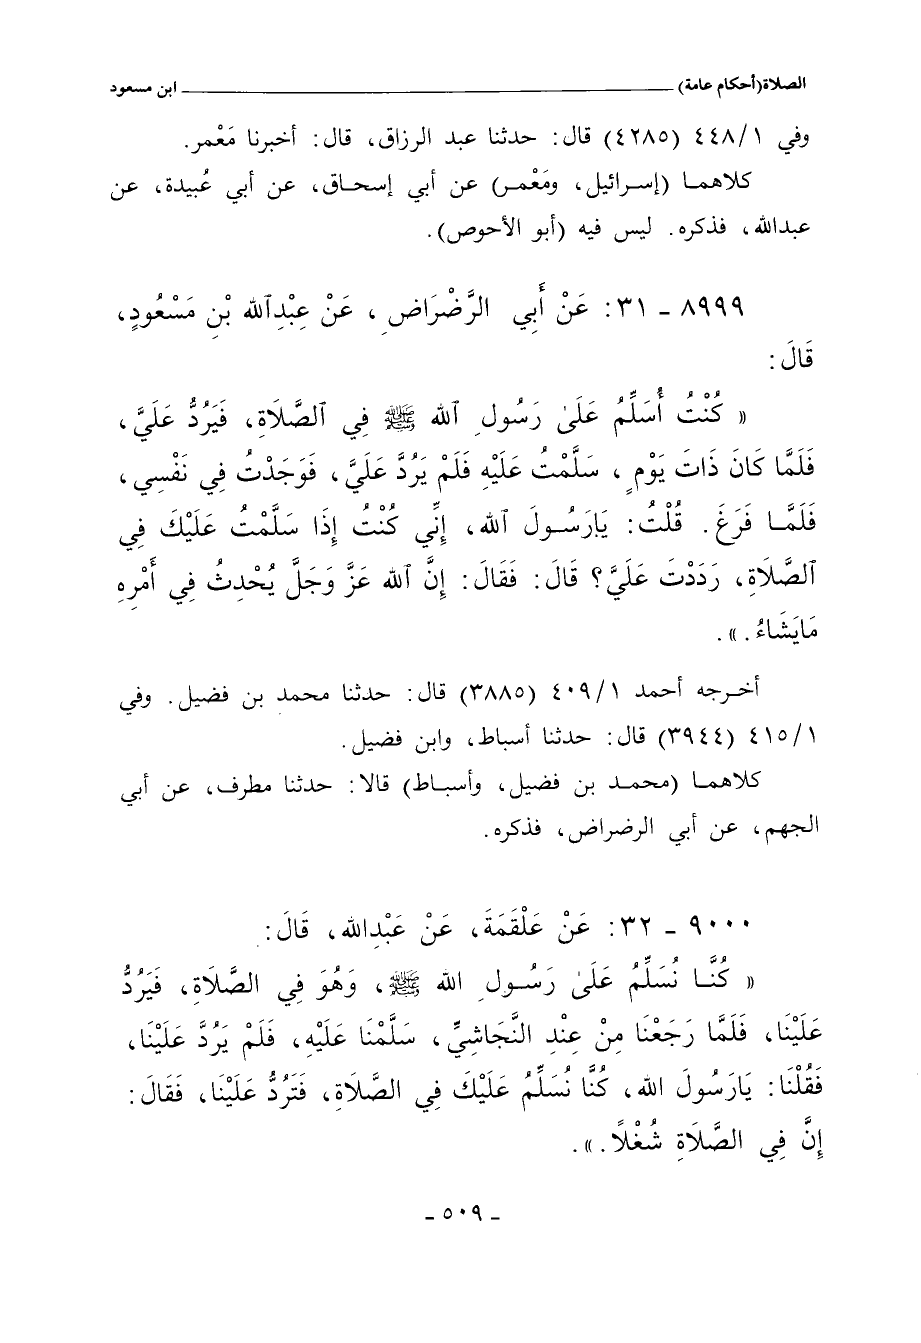 الصلاة(أحكام عامة) ــــــــــــــــــــــــــــــــــــــــ ابن مسعود
وفي ٤٤٨/١ (٤٢٨٥) قال: حدثنا عبد الرزاق، قال: أخبرنا مَعْمر.
كلاهما (إسرائيل، ومَعْمر) عن أبي إسحاق، عن أبي عُبيدة، عن
عبدالله، فذكره. ليس فيه (أبو الأحوص).
٨٩٩٩ - ٣١: عَنْ أَبِي الرَّضْرَاضِ، عَنْ عِبْدِاللهِ بْنِ مَسْعُودٍ،
قَالَ:
« كُنْتُ أُسَلِّمُ عَلَىٰ رَسُولِ ٱللهِ ﷺ فِي ٱلصَّلَاةِ، فَيَرُدُّ عَلَيَّ،
فَلَمَّا كَانَ ذَاتَ يَوْمٍ، سَلَّمْتُ عَلَيْهِ فَلَمْ يَرُدَّ عَلَيَّ، فَوَجَدْتُ فِي نَفْسِي،
فَلَمَّا فَرَغَ. قُلْتُ: يَارَسُولَ ٱللهِ، إِنِّي كُنْتُ إِذَا سَلَّمْتُ عَلَيْكَ فِي
ٱلصَّلَاةِ، رَدَدْتَ عَلَيَّ؟ قَالَ: فَقَالَ: إِنَّ ٱللهَ عَزَّ وَجَلَّ يُحْدِثُ فِي أَمْرِهِ
مَايَشَاءُ.».
أخرجه أحمد ٤٠٩/١ (٣٨٨٥) قال: حدثنا محمد بن فضيل. وفي
٤١٥/١ (٣٩٤٤) قال: حدثنا أسباط، وابن فضيل.
كلاهما (محمد بن فضيل، وأسباط) قالا: حدثنا مطرف، عن أبي
الجهم، عن أبي الرضراض، فذكره.
٩٠٠٠ - ٣٢: عَنْ عَلْقَمَةَ، عَنْ عَبْدِاللهِ، قَالَ:
« كُنَّا نُسَلِّمُ عَلَىٰ رَسُولِ اللهِ ﷺ، وَهُوَ فِي الصَّلَاةِ، فَيَرُدُّ
عَلَيْنَا، فَلَمَّا رَجَعْنَا مِنْ عِنْدِ النَّجَاشِيِّ، سَلَّمْنَا عَلَيْهِ، فَلَمْ يَرُدَّ عَلَيْنَا،
فَقُلْنَا: يَارَسُولَ اللهِ، كُنَّا نُسَلِّمُ عَلَيْكَ فِي الصَّلَاةِ، فَتَرُدُّ عَلَيْنَا، فَقَالَ:
إِنَّ فِي الصَّلَاةِ شُغْلًا.».
- ٥٠٩ -